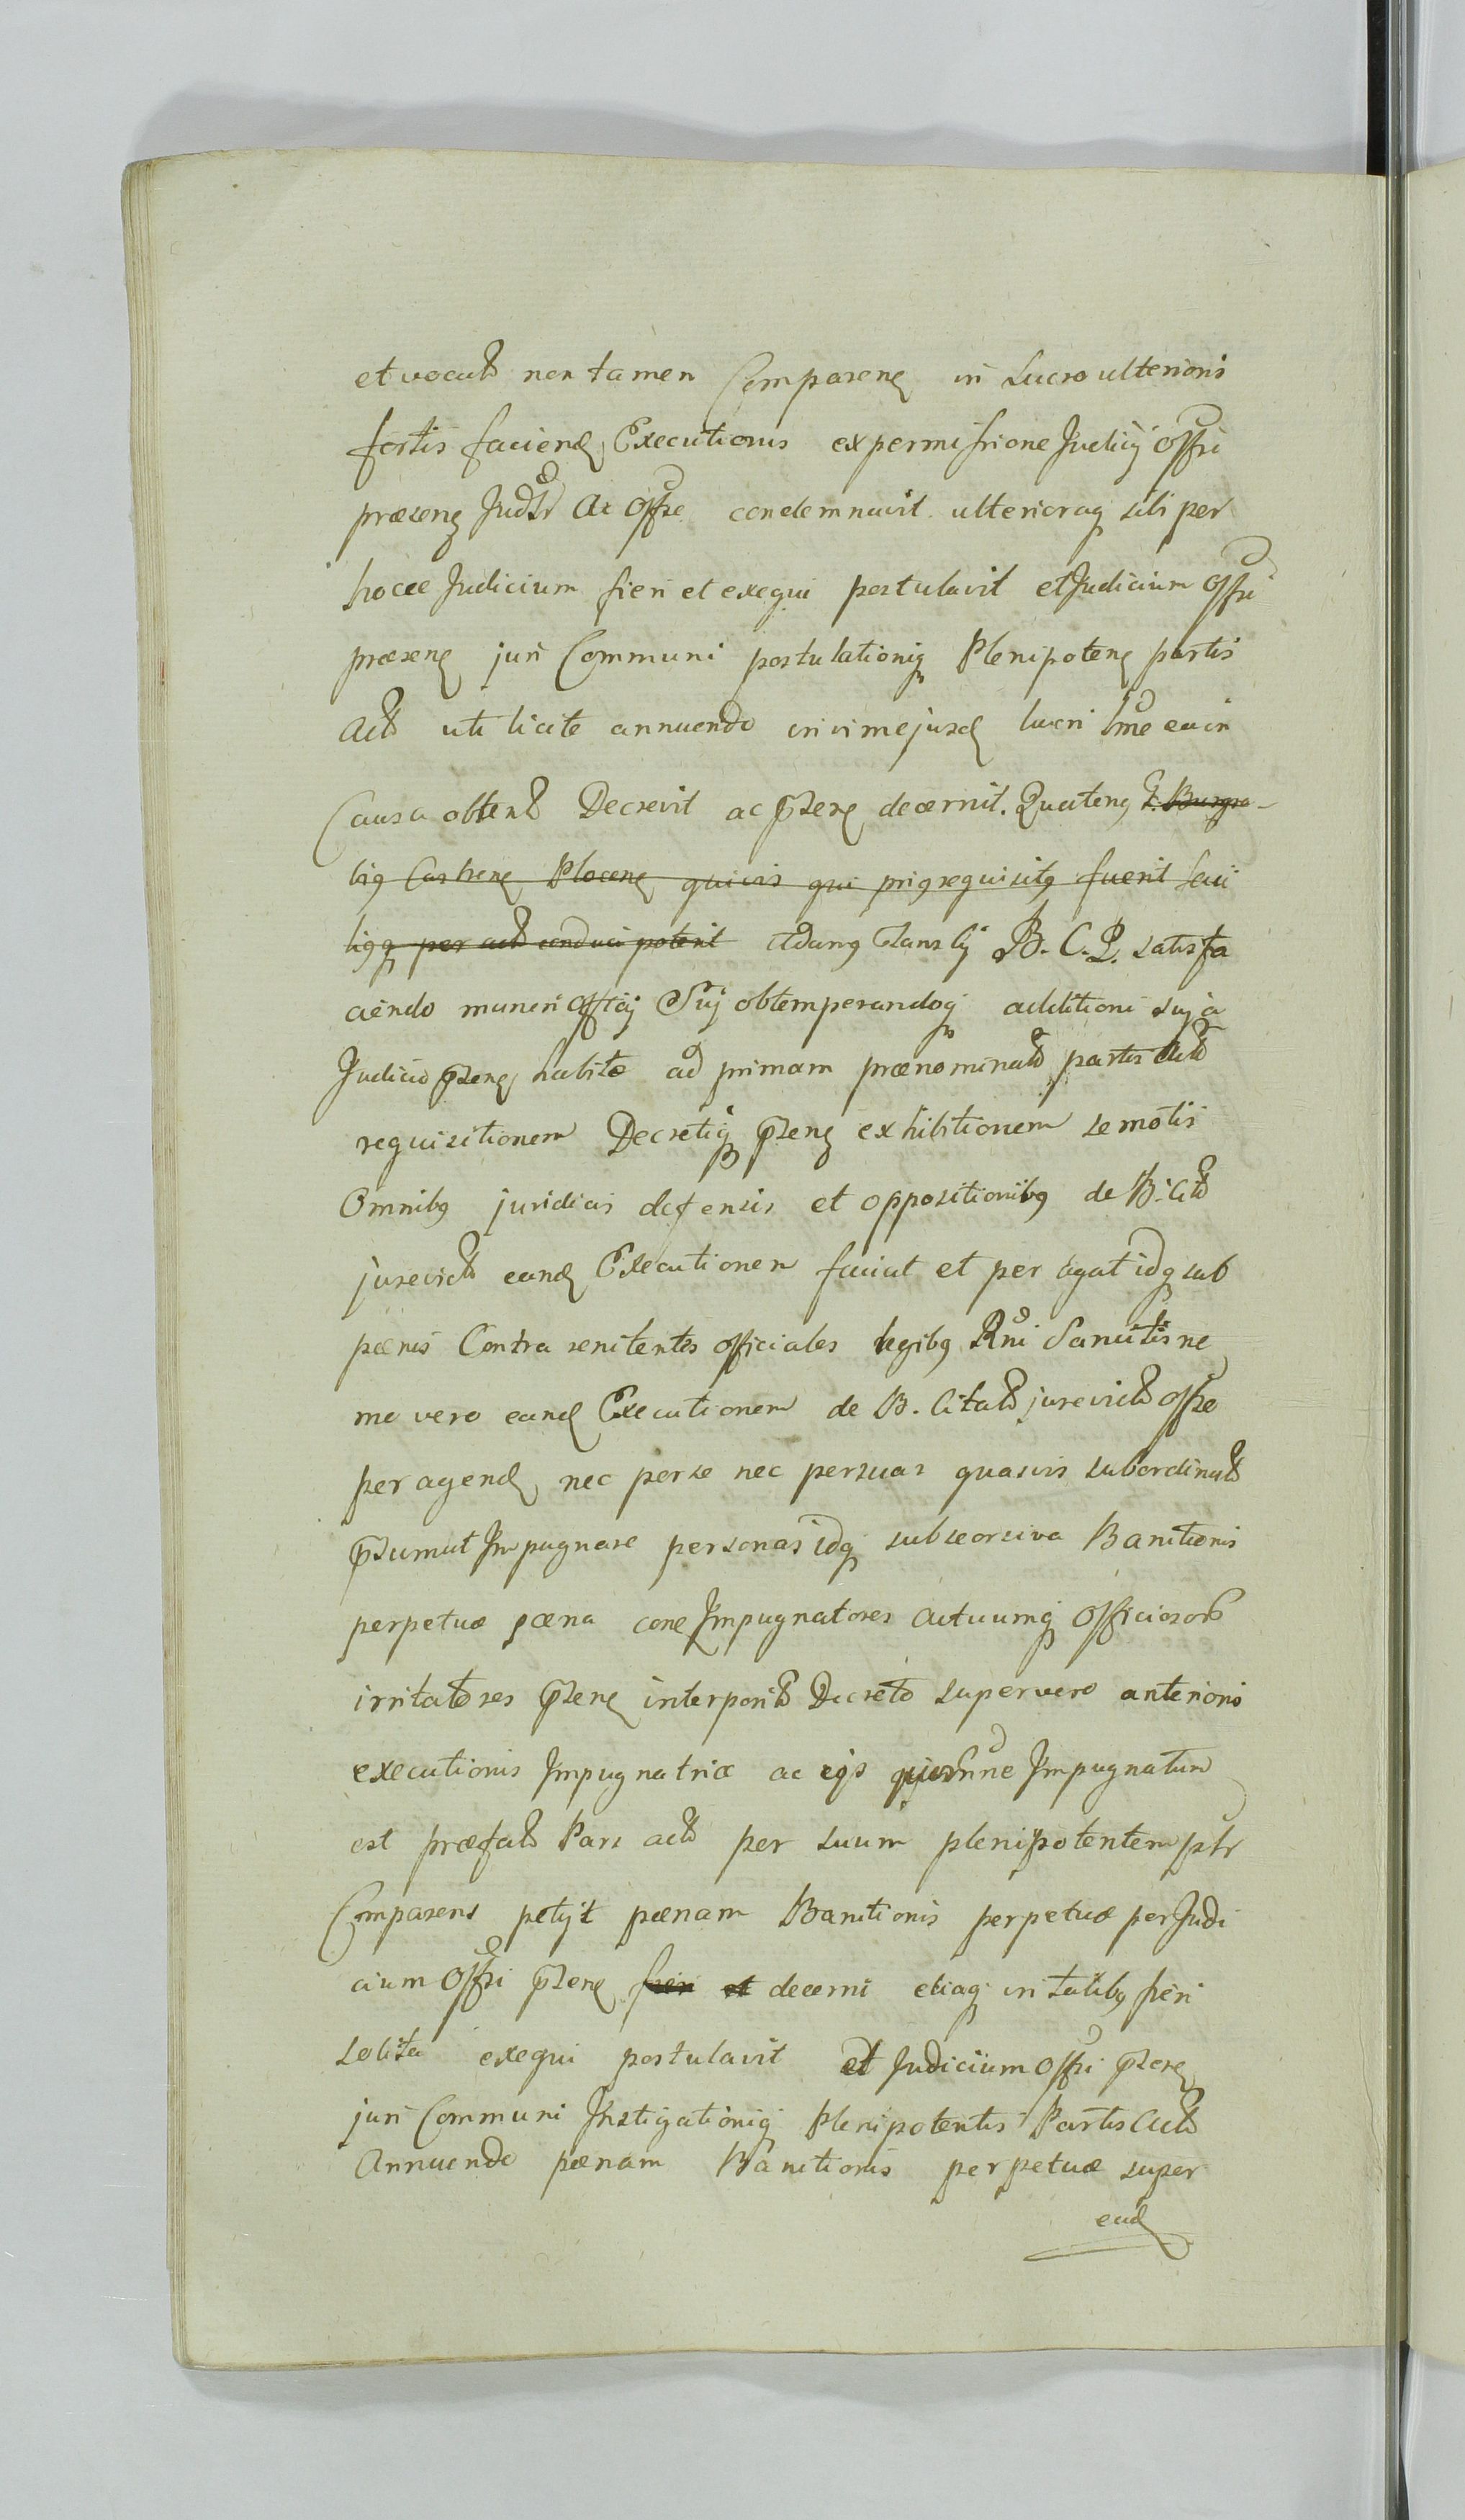 et vocat non tamen Comparen in Lucro ulterioris
fortis faciend Executionis ex permissione Judicij Offsi
præsenq Judlr ac Offse condemnavit ulterioraq sibi per
hocce Judicium fieri et exequi postulavit et Judicium Offsi
præsenq juri Communi postulationiq Plenipotenq partis
Act uti licite annuendo in vim ejusd lucri lmæ ea in
Causa obtent Decrevit ac pntenq decernit. Quatenq S. Burgra-
biq Castrenq Plocenq quivis qui priq requisitq fuerit seu
ligq per act conduci poterit Adamq B. C. P. satisfa
ciendo muneri Officij Sui obtemperandoq additioni suj a
Judicio pntenq habitæ ad primam prænominat partis Act
requisitionem Decretiq pntenq exhibitionem semotis
Omnibq juridicis defensis et oppositionibq de B. Cit
jurevict eand Executionem faciat et peragat idq sub
pænis Contra renitentes officiales legibq Rni Sancitis ne
mo vero eand Executionem de B. Citat jurevict Offse
peragend nec per se nec per suas quasvis subordinat
pntsumat Impugnare personas idq sub seorsiva Banitionis
perpetuæ pæna conq Impugnatores Actuumq Officiosor
irritatores pntenq interposit Decreto super vero anterioris
executionis Impugnatrice ac Impugnatum
est præfat Pars act per suum plenipotentem ptr
Comparens petijt pænam Banitionis perpetuæ per Judi
cium Offsi pntenq fieri et decerni eliaq in talibq fieri
solita exequi postulavit et Judicium Offsi pntenq
juri Communi Instigationiq Plenipotentis Partis Act
Annuendo pænam Banitionis perpetuæ super
ead